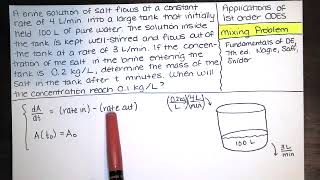 A brine solution of salt flows at a constant
rate of 4 L/min into a large tank that initially
held 100 L of pure water. The solution inside
the tank is kept well-stirred and flows out of
the tank at a rate of 3 L/min. If the concen-
tration of the salt in the brine entering the
tank is 0.2 kg/L, determine the mass of the
salt in the tank after t minutes. When will
the concentration reach 0.1 kg/L?
Applications of
1st order ODES
Mixing Problem
Fundamentals of DE
7th ed. Nagle, Saff,
Snider
dA/dt = (rate in) - (rate out)
A(t₀) = A₀
(0.2 kg/L)(4L/min)
100 L
3L/min